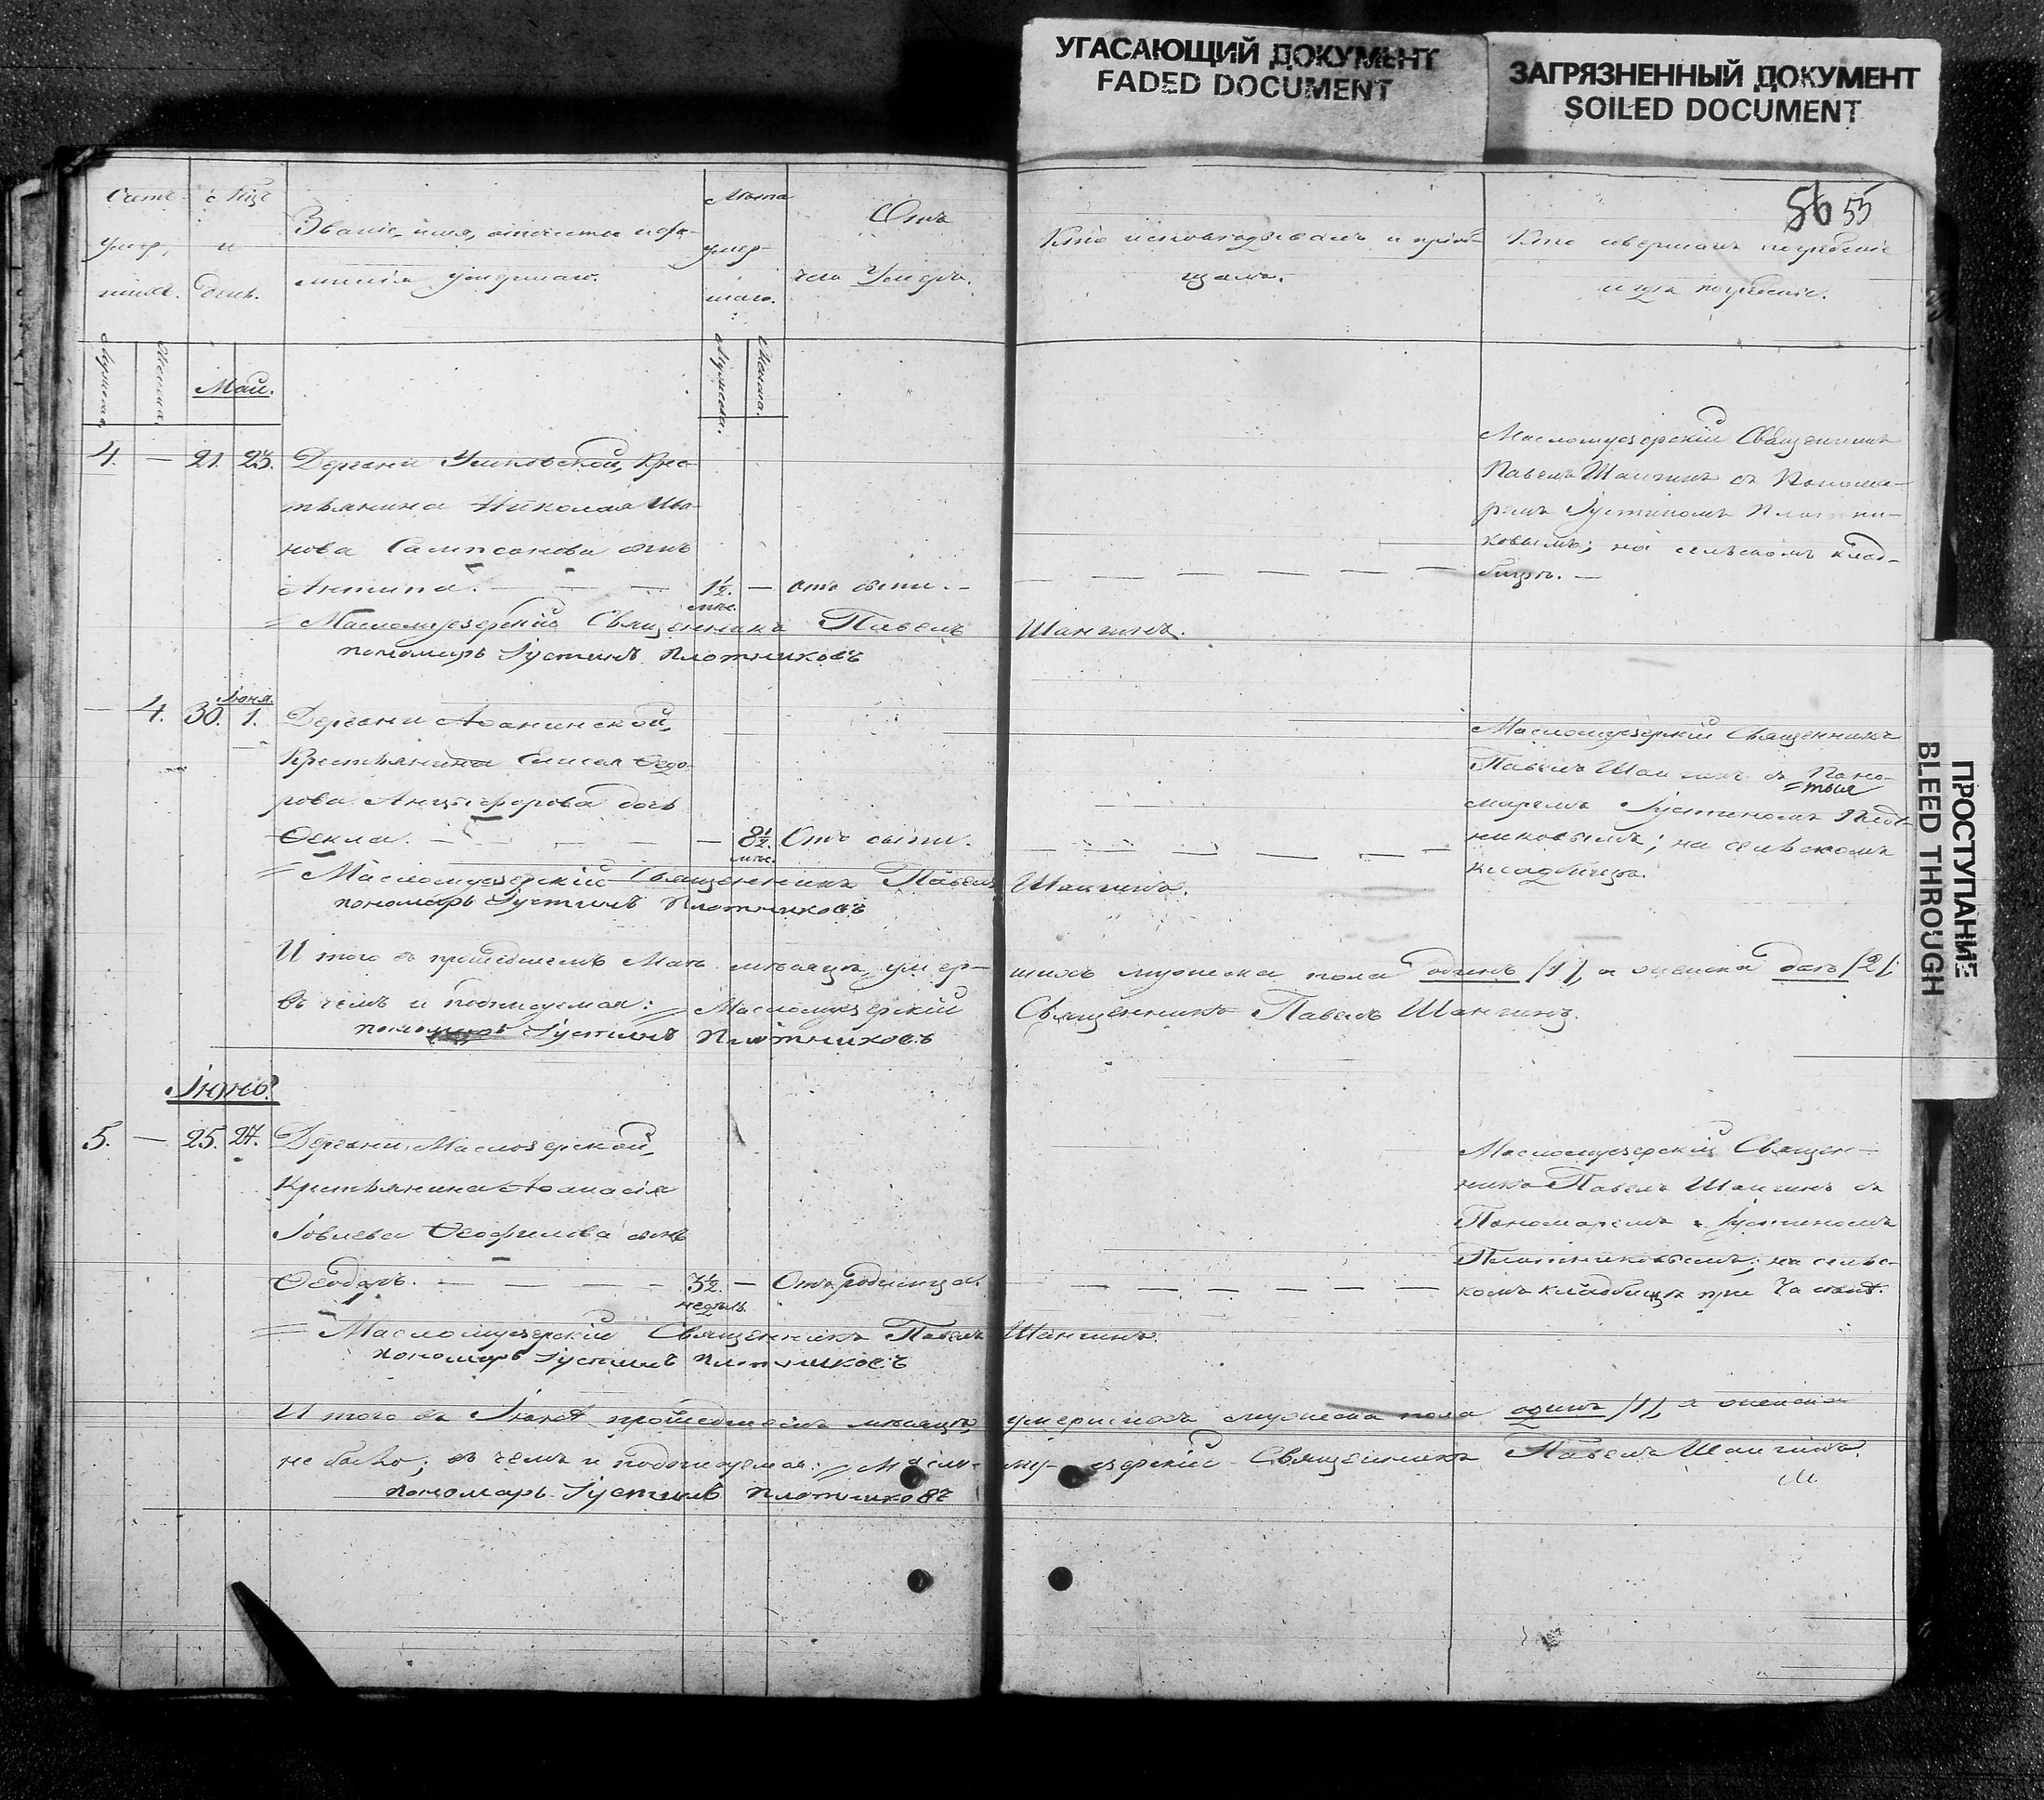 УГАСАЮЩИЙ ДОКУМЕНТ
FADED DOCUMENT
ЗАГРЯЗНЕННЫЙ ДОКУМЕНТ
SOILED DOCUMENT
ПРОСТУПАНИЕ
BLEED THROUGH
56 55
Счетъ
умер-
шихъ.
и
день.
Званіе, имя, отчество и фа-
милія умершаго.
Лѣта
умер-
шаго.
Отъ
чего умеръ.
Кто исповѣдывалъ и пріоб-
щалъ.
Кто совершалъ погребеніе
и гдѣ погребенъ.
Мужеска.
Женска.
Мужеска.
Женска.
Май.
4. — 21. 23. Деревни Крес-
тьянина Николая Ива-
нова Сампсонова сынъ
Антипа. — — — 1½ — отъ сыпи. —
мѣс.
Масломуезерскій Священникъ
Павелъ Шангинъ съ Понома-
ремъ Іустиномъ Плотни-
ковымъ; на сельскомъ клад-
бищѣ. —
Масломуезерскій Священникъ Павелъ Шангинъ.
пономарь Іустинъ Плотниковъ
Іюня.
— 4. 30. 1. Деревни
Крестьянина Елисея Ѳедо-
рова Анцыферова дочь
Ѳекла. — — — — 8½. Отъ сыпи.
мѣс.
Масломуезерскій Священникъ
Павелъ Шангинъ съ Поно-
маремъ Іустиномъ Плот-
никовымъ; на сельскомъ
кладбищѣ.
Масломуезерскій Священникъ Павелъ Шангинъ.
пономарь Іустинъ Плотниковъ
Итого въ прошедшемъ Маѣ мѣсяцѣ умер-шихъ мужеска пола одинъ /1/, а женска двѣ /2/;
въ чемъ и подписуемся: Масломуезерскій Священникъ Павелъ Шангинъ.
пономарь Іустинъ Плотниковъ
Іюнь.
5. — 25. 27. Деревни Маслозерской,
Крестьянина Аѳанасія
Іовлева Ѳеофилова сынъ
Ѳеодоръ. — — — — 3½. — Отъ родимца.
недѣль.
Масломуезерскій Священ-
никъ Павелъ Шангинъ съ
Пономаремъ Іустиномъ
Плотниковымъ; на сельс-
комъ кладбищѣ при
Масломуезерскій Священникъ Павелъ Шангинъ.
пономарь Іустинъ Плотниковъ
Итого въ Іюнѣ прошедшемъ мѣсяцѣ умершихъ мужеска пола одинъ /1/, а женска
не было; въ чемъ и подписуемся: Масло-му-езерскій Священникъ Павелъ Шангинъ.
пономарь Іустинъ Плотниковъ